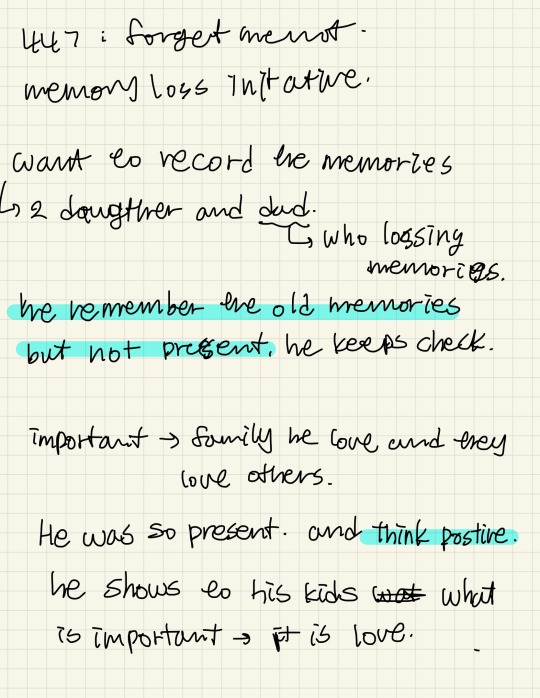 447 : forget menot.
memory loss Initative.
want to record the memories
↳ 2 daugther and dad.
↳ who lossing
memories.
he remember the old memories
but not present, he keeps check.
important → family he love and they
love others.
He was so present. and think postive.
he shows to his kids what
is important → it is love.